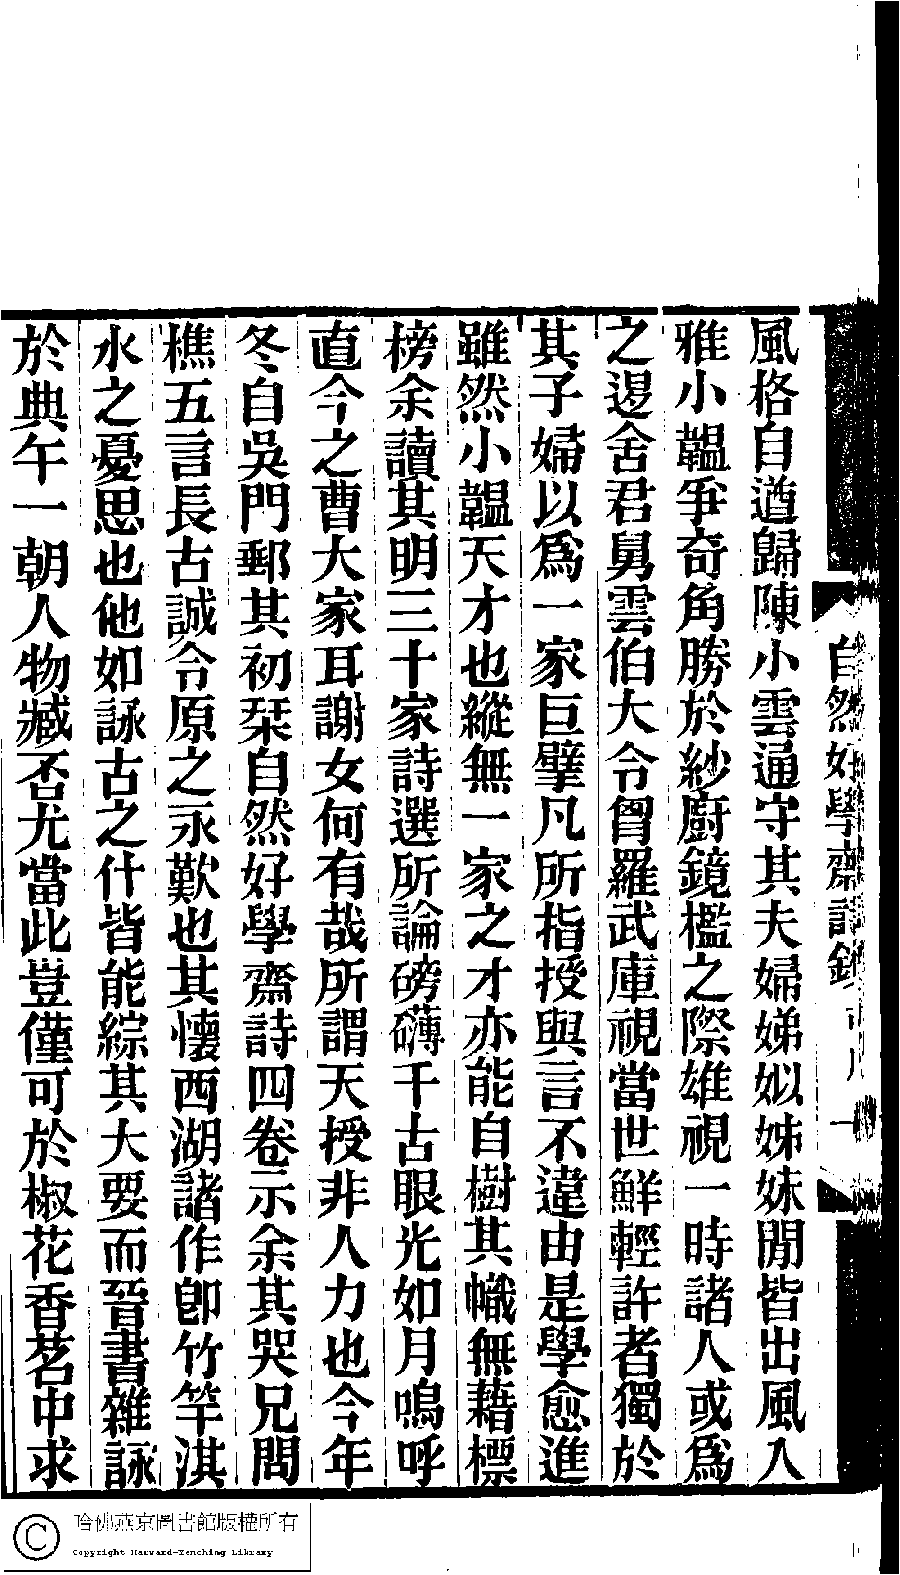 風格自遒歸陳小雲通守其夫婦娣姒姊妹閒皆出風入
雅小韞爭奇角勝於紗廚鏡檻之際雄視一時諸人或爲
之邊舍君舅雲伯大令曾羅武庫視當世鮮輕許者獨於
其子婦以爲一家巨擘凡所指授與言不違由是學愈進
雖然小韞天才也縱無一家之才亦能自樹其幟無藉標
榜余讀其明三十家詩選所論磅礴千古眼光如月嗚呼
直今之曹大家耳謝女何有哉所謂天授非人力也今年
冬自吳門郵其初栞自然好學齋詩四卷示余其哭兄問
樵五言長古誠令原之永歎也其懷西湖諸作卽竹竿淇
水之憂思也他如詠古之什皆能綜其大要而晉書雜詠
於典午一朝人物臧否尤當此豈僅可於椒花香茗中求
自然好學齋詩鈔 一
哈佛燕京圖書館版權所有
Copyright Harvard-Yenching Library